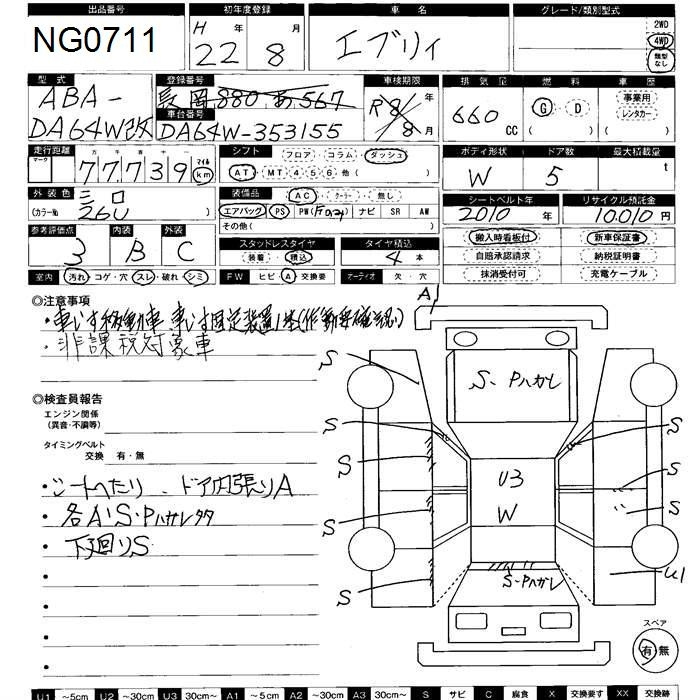 出品番号 初年度登録 車名 グレード/類別型式
NG0711 H 22 年 8 月 エブリィ 2WD 4WD 類型なし
型式 登録番号 車検期限 排気量 燃料 車歴
ABA-DA64W改 長岡880あ567 R8年8月 660 CC G・D ( ) 事業用 レンタカー ( )
車台番号
DA64W-353155
走行距離 シフト フロア・コラム・ダッシュ ボディ形状 ドア数 最大積載量
マーク 十万 万 千 百 十 一
77739 マイル km AT・MT 4 5 6 他( ) W 5 t
外装色 装備品 AC・クーラー・無し シートベルト年 リサイクル預託金
三口
(カラーNo 26U ) エアバック PS PW(F のみ) ナビ SR AW 2010 年 10010 円
その他( )
参考評価点 内装 外装 スタッドレスタイヤ タイヤ積込 搬入時看板付 新車保証書
3 B C 装着・積込 4 本 自賠承認請求 納税証明書
室内 汚れ・コゲ・穴・スレ・破れ・シミ FW ヒビ・A・交換要 オーディオ 欠・穴 抹消受付可 充電ケーブル
◎注意事項
・車いす移動車 車いす固定装置1基(作動要確認)
・非課税対象車
◎検査員報告
エンジン関係
(異音・不調等)
タイミングベルト
交換 有・無
・シートへたり、ドア内張りA
・各A・S・Pハガレタタ
・下廻りS
A1
S S・Pハガレ
S S
S U3 S
S W S
S S・Pハガレ U1
スペア
有 無
U1 ~5cm U2 ~30cm U3 30cm~ A1 ~5cm A2 ~30cm A3 30cm~ S サビ C 腐食 X 交換要す XX 交換跡